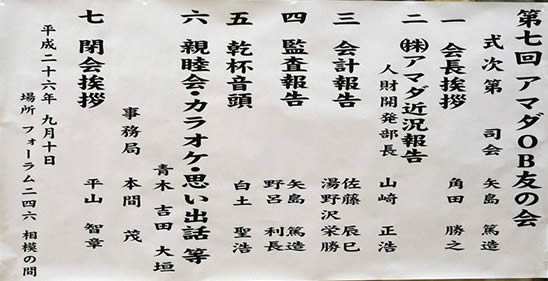 第七回 アマダOB友の会
式次第 司会 矢島 篤造
一 会長挨拶 角田 勝之
二 ㈱アマダ近況報告
人財開発部長 山崎 正浩
三 会計報告 佐藤 辰巳
湯野沢 栄勝
四 監査報告 矢島 篤造
野呂 利長
五 乾杯音頭 白土 聖浩
六 親睦会・カラオケ・思い出話 等
青木 吉田 大垣
事務局 本間 茂
七 閉会挨拶 平山 智章
平成二十六年 九月十日
場所 フォーラム二四六 相模の間